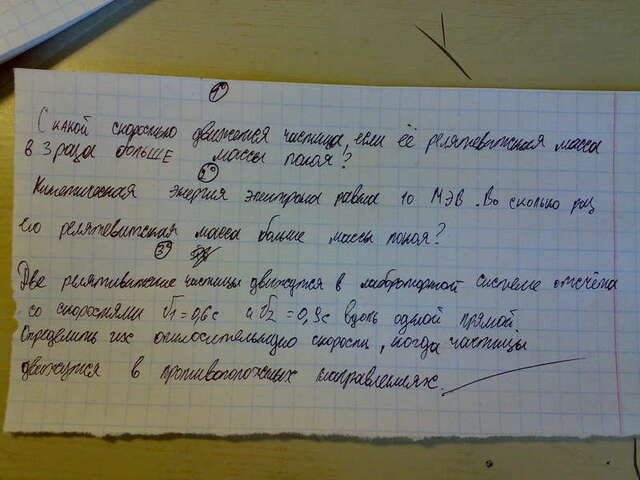 1
С какой скоростью движется частица, если её релятевитская масса
в 3 раза больше массы покоя?
2
Кинетическая энергия электрона равна 10 МЭВ. Во сколько раз
его релятевитская масса больше массы покоя?
3
Две релятивитские частицы движутся в лаборторной системе отсчёта
со скоростями v1=0,6c и v2=0,9c вдоль одной прямой.
Определить их относительную скорость, когда частицы
движутся в противоположных направлениях.